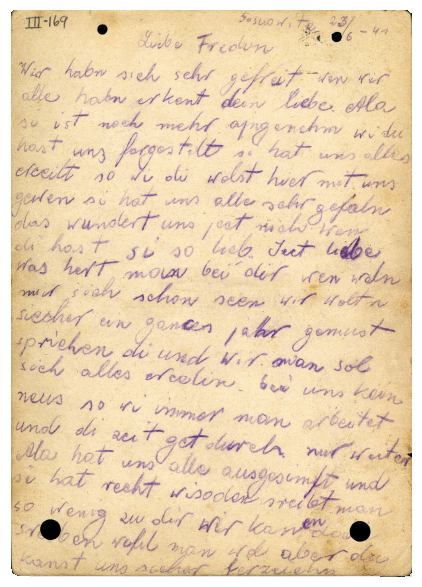 III-169
Sosnowitz 23/6-41
Liebe Fredzin
Wir habn sich sehr gefreit wen wir
alle habn erkent dein liebe Ala
si ist noch mehr angenehm wi du
hast uns forgestilt si hat uns alles
erceilt so wi di wolst hier mit uns
gewen si hat uns alle sehr gefaln
das wundert uns ject nich wen
di hast si so lieb. Ject liebe
was hert man bei dir wen weln
mir sich schon seen wir woltn
siecher ein gances jahr gemust
sprichen di und wir. man sol
sich alles ercelin. bei uns kein
neus so wi immer man arbeitet
und di zeit get durch nur weiter
Ala hat uns alle ausgesimpft und
si hat recht wisoden sreibt man
so wenig zu dir wer kan den das
sreiben wifl man wil aber du
kanst uns sicher ferzeichn